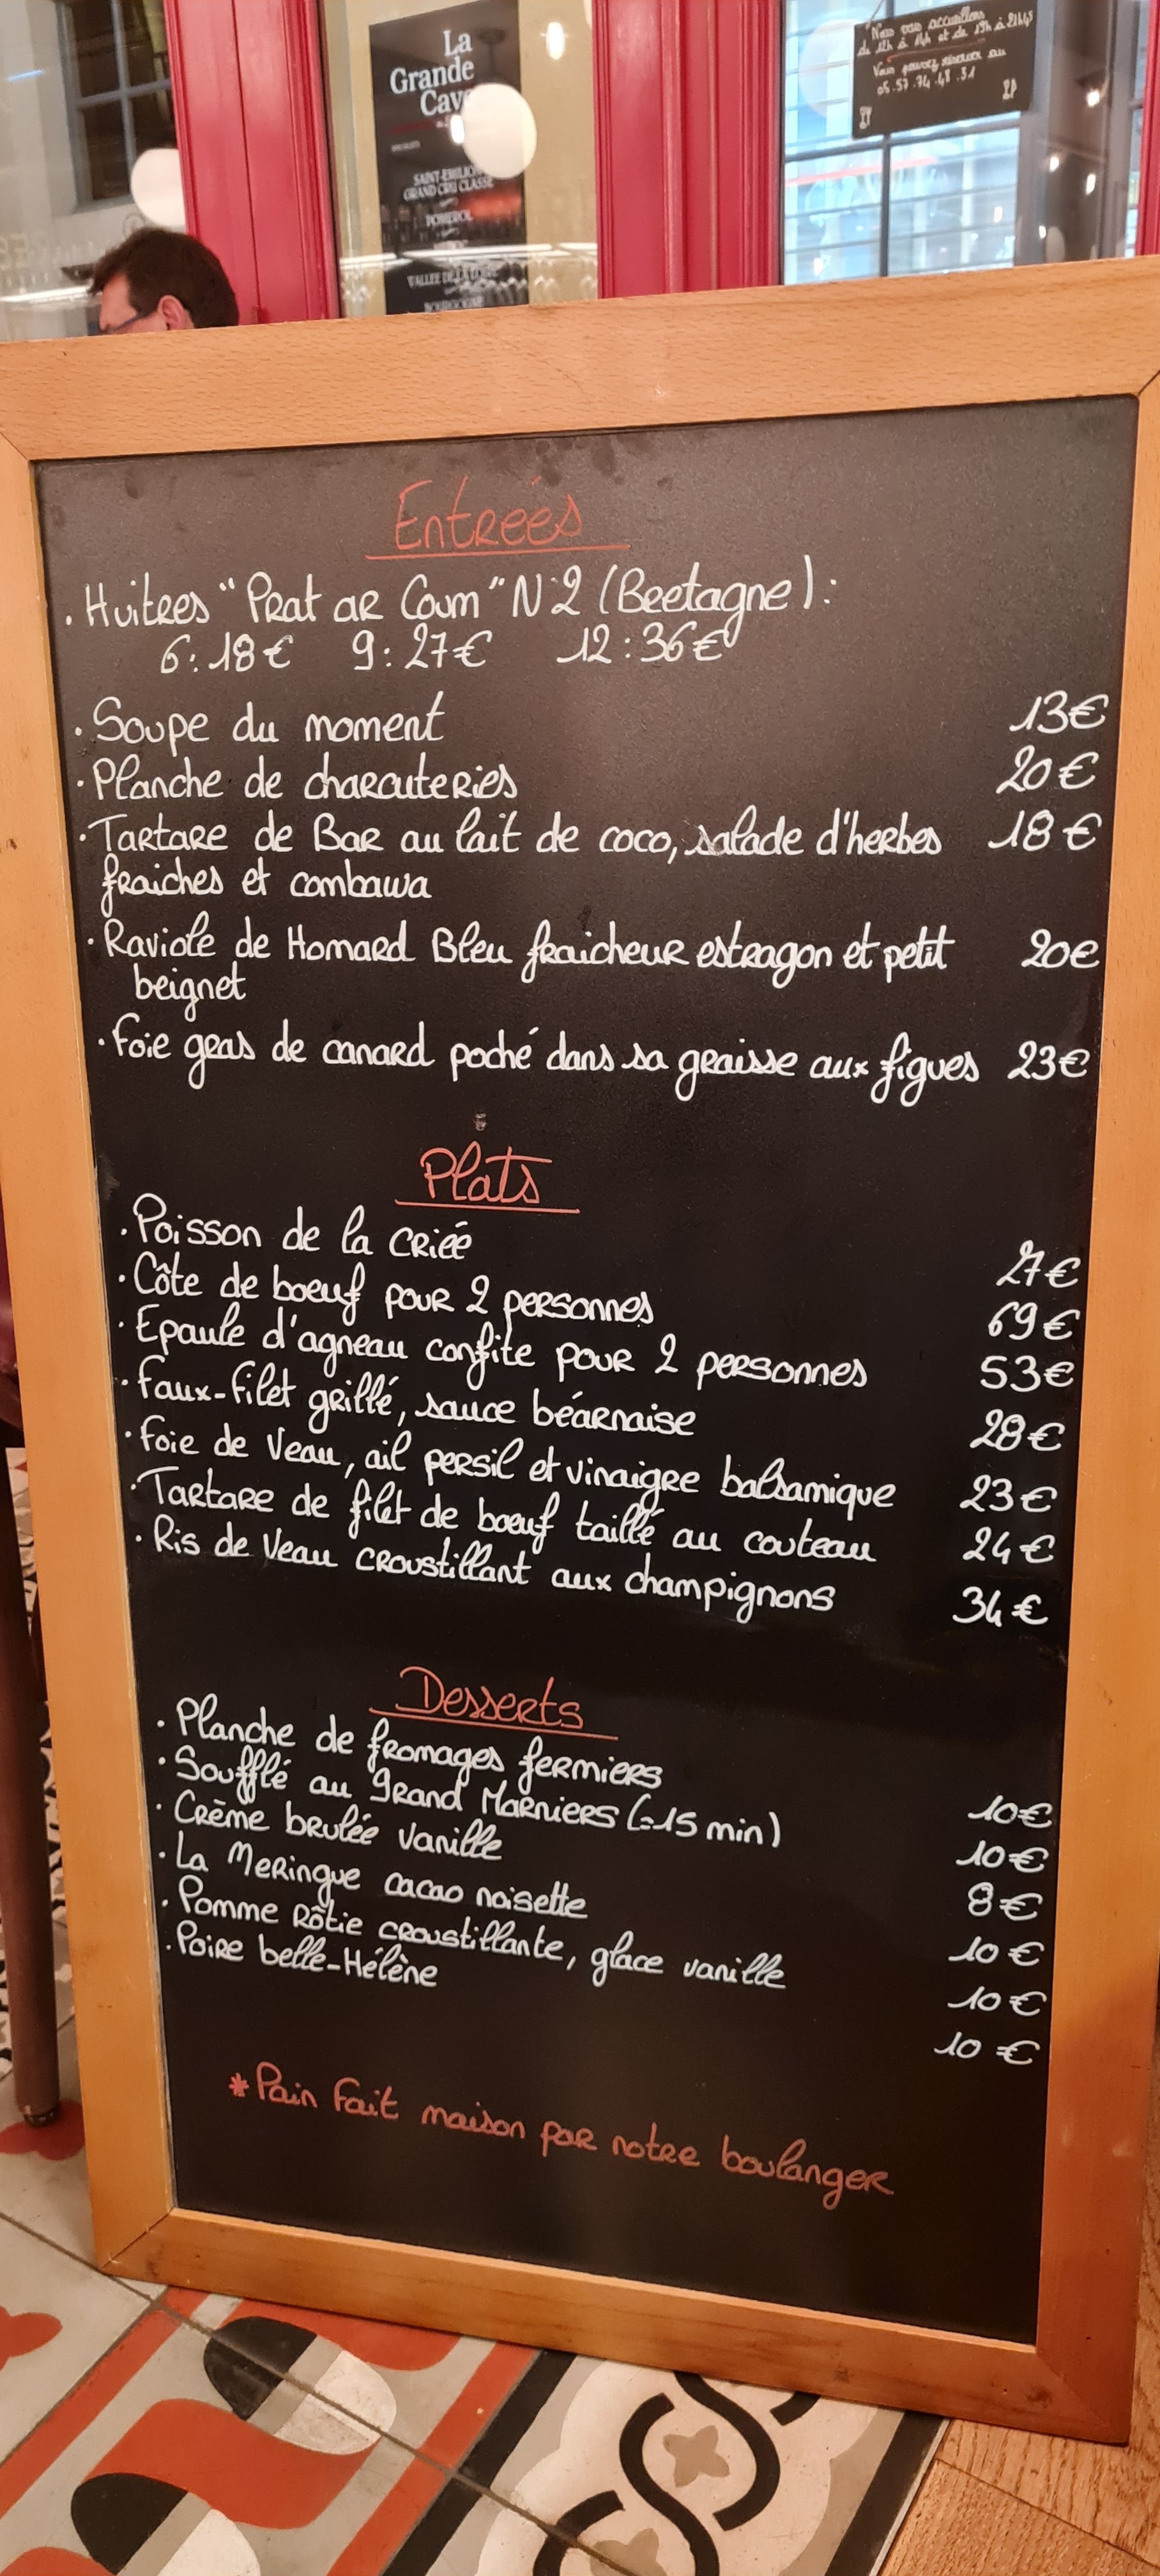 La
Grande
Cave
SAINT-EMILION
GRAND CRU CLASSÉ
POMEROL
VALLEE DE LA
BOURGOGNE
Nous vous accueillons
de 12h à 14h et de 19h à 21h45
Vous pouvez réserver au
05.57.74.48.31
Entrées
. Huitres "Prat ar Coum" N°2 (Bretagne):
6: 18€ 9: 27€ 12: 36€
. Soupe du moment 13€
. Planche de charcuteries 20€
. Tartare de Bar au lait de coco, salade d'herbes 18€
fraiches et combawa
. Raviole de Homard Bleu fraicheur estragon et petit 20€
beignet
. Foie gras de canard poché dans sa graisse aux figues 23€
Plats
. Poisson de la criée 27€
. Côte de boeuf pour 2 personnes 69€
. Epaule d'agneau confite pour 2 personnes 53€
. Faux-filet grillé, sauce béarnaise 28€
. Foie de Veau, ail persil et vinaigre balsamique 23€
. Tartare de filet de boeuf taillé au couteau 24€
. Ris de Veau croustillant aux champignons 34€
Desserts
. Planche de fromages fermiers 10€
. Soufflé au Grand Marniers (=15 min) 10€
. Crème brulée vanille 8€
. La Meringue cacao noisette 10€
. Pomme Rôtie croustillante, glace vanille 10€
. Poire belle-Hélène 10€
* Pain Fait maison par notre boulanger